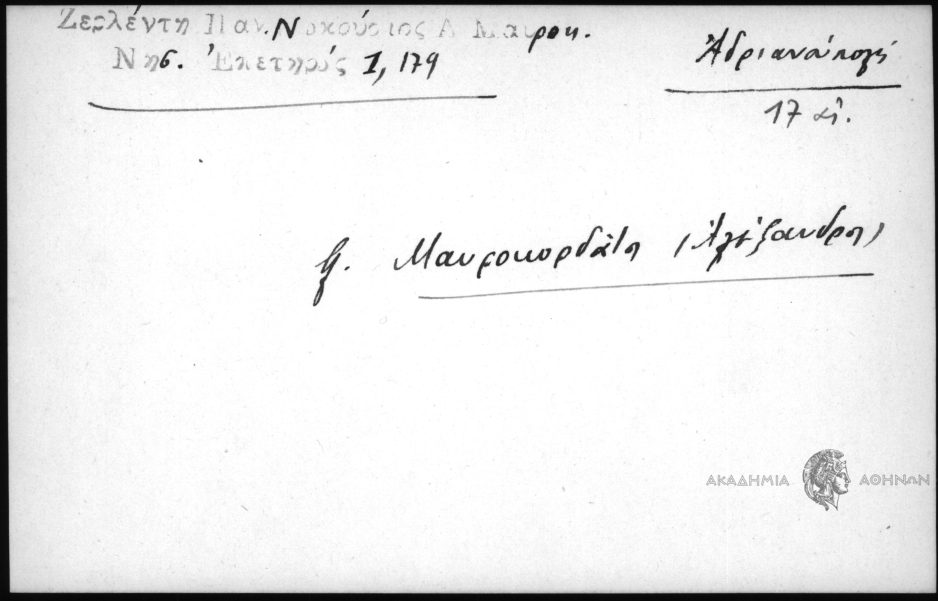 Ζερλέντη Παν. Νικούσιος Α. Μαυροκ.
Νησ. Ἐπετηρίς I, 179
Ἀδριανάπολι
17 αἰ.
Μαυροκορδάτο (Ἀλέξανδρο)
ΑΚΑΔΗΜΙΑ ΑΘΗΝΩΝ